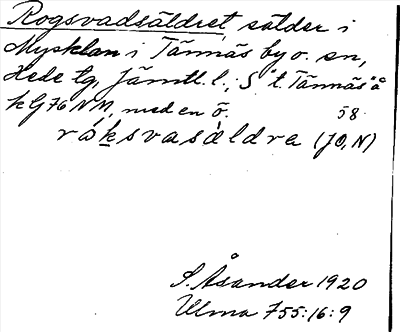 Rogsvadsäldret, sälder i
Mysklan i Tännäs by o. sn,
Hede tg, Jämtl. l.; S "t. Tännäs" å
kG76NM, med en ö. 58
råksvasældra (JO, N)
S. Åsander 1920
Ulma 755:16:9